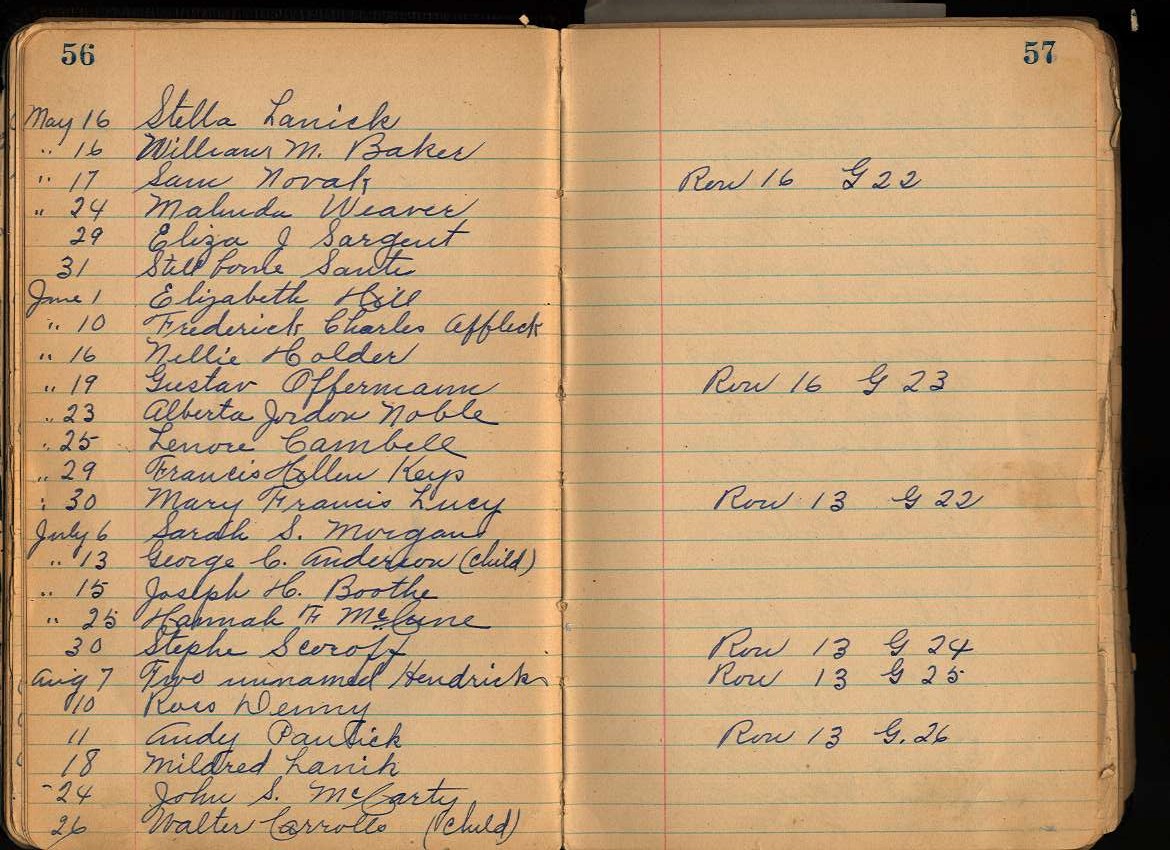 56
57
May 16 Stella Lanick
" 16 William M. Baker
" 17 Sam Novak Row 16 G 22
" 24 Malinda Weaver
29 Eliza J Sargent
31 Still borne Santi
June 1 Elizabeth Hill
" 10 Frederick Charles Affleck
" 16 Nellie Holder
" 19 Gustav Offermann Row 16 G 23
" 23 Alberta Jordon Noble
" 25 Lenore Cambell
" 29 Francis Hellen Keys
" 30 Mary Francis Lucy Row 13 G 22
July 6 Sarah S. Morgan
" 13 George C. Anderson (child)
" 15 Joseph H. Boothe
" 25 Hannah F McCune
30 Stephe Row 13 G 24
Aug 7 Two unnamed Hendricks Row 13 G 25
10 Ross Denny
11 Andy Row 13 G. 26
18 Mildred Lanik
24 John S. McCarty
26 Walter (child)